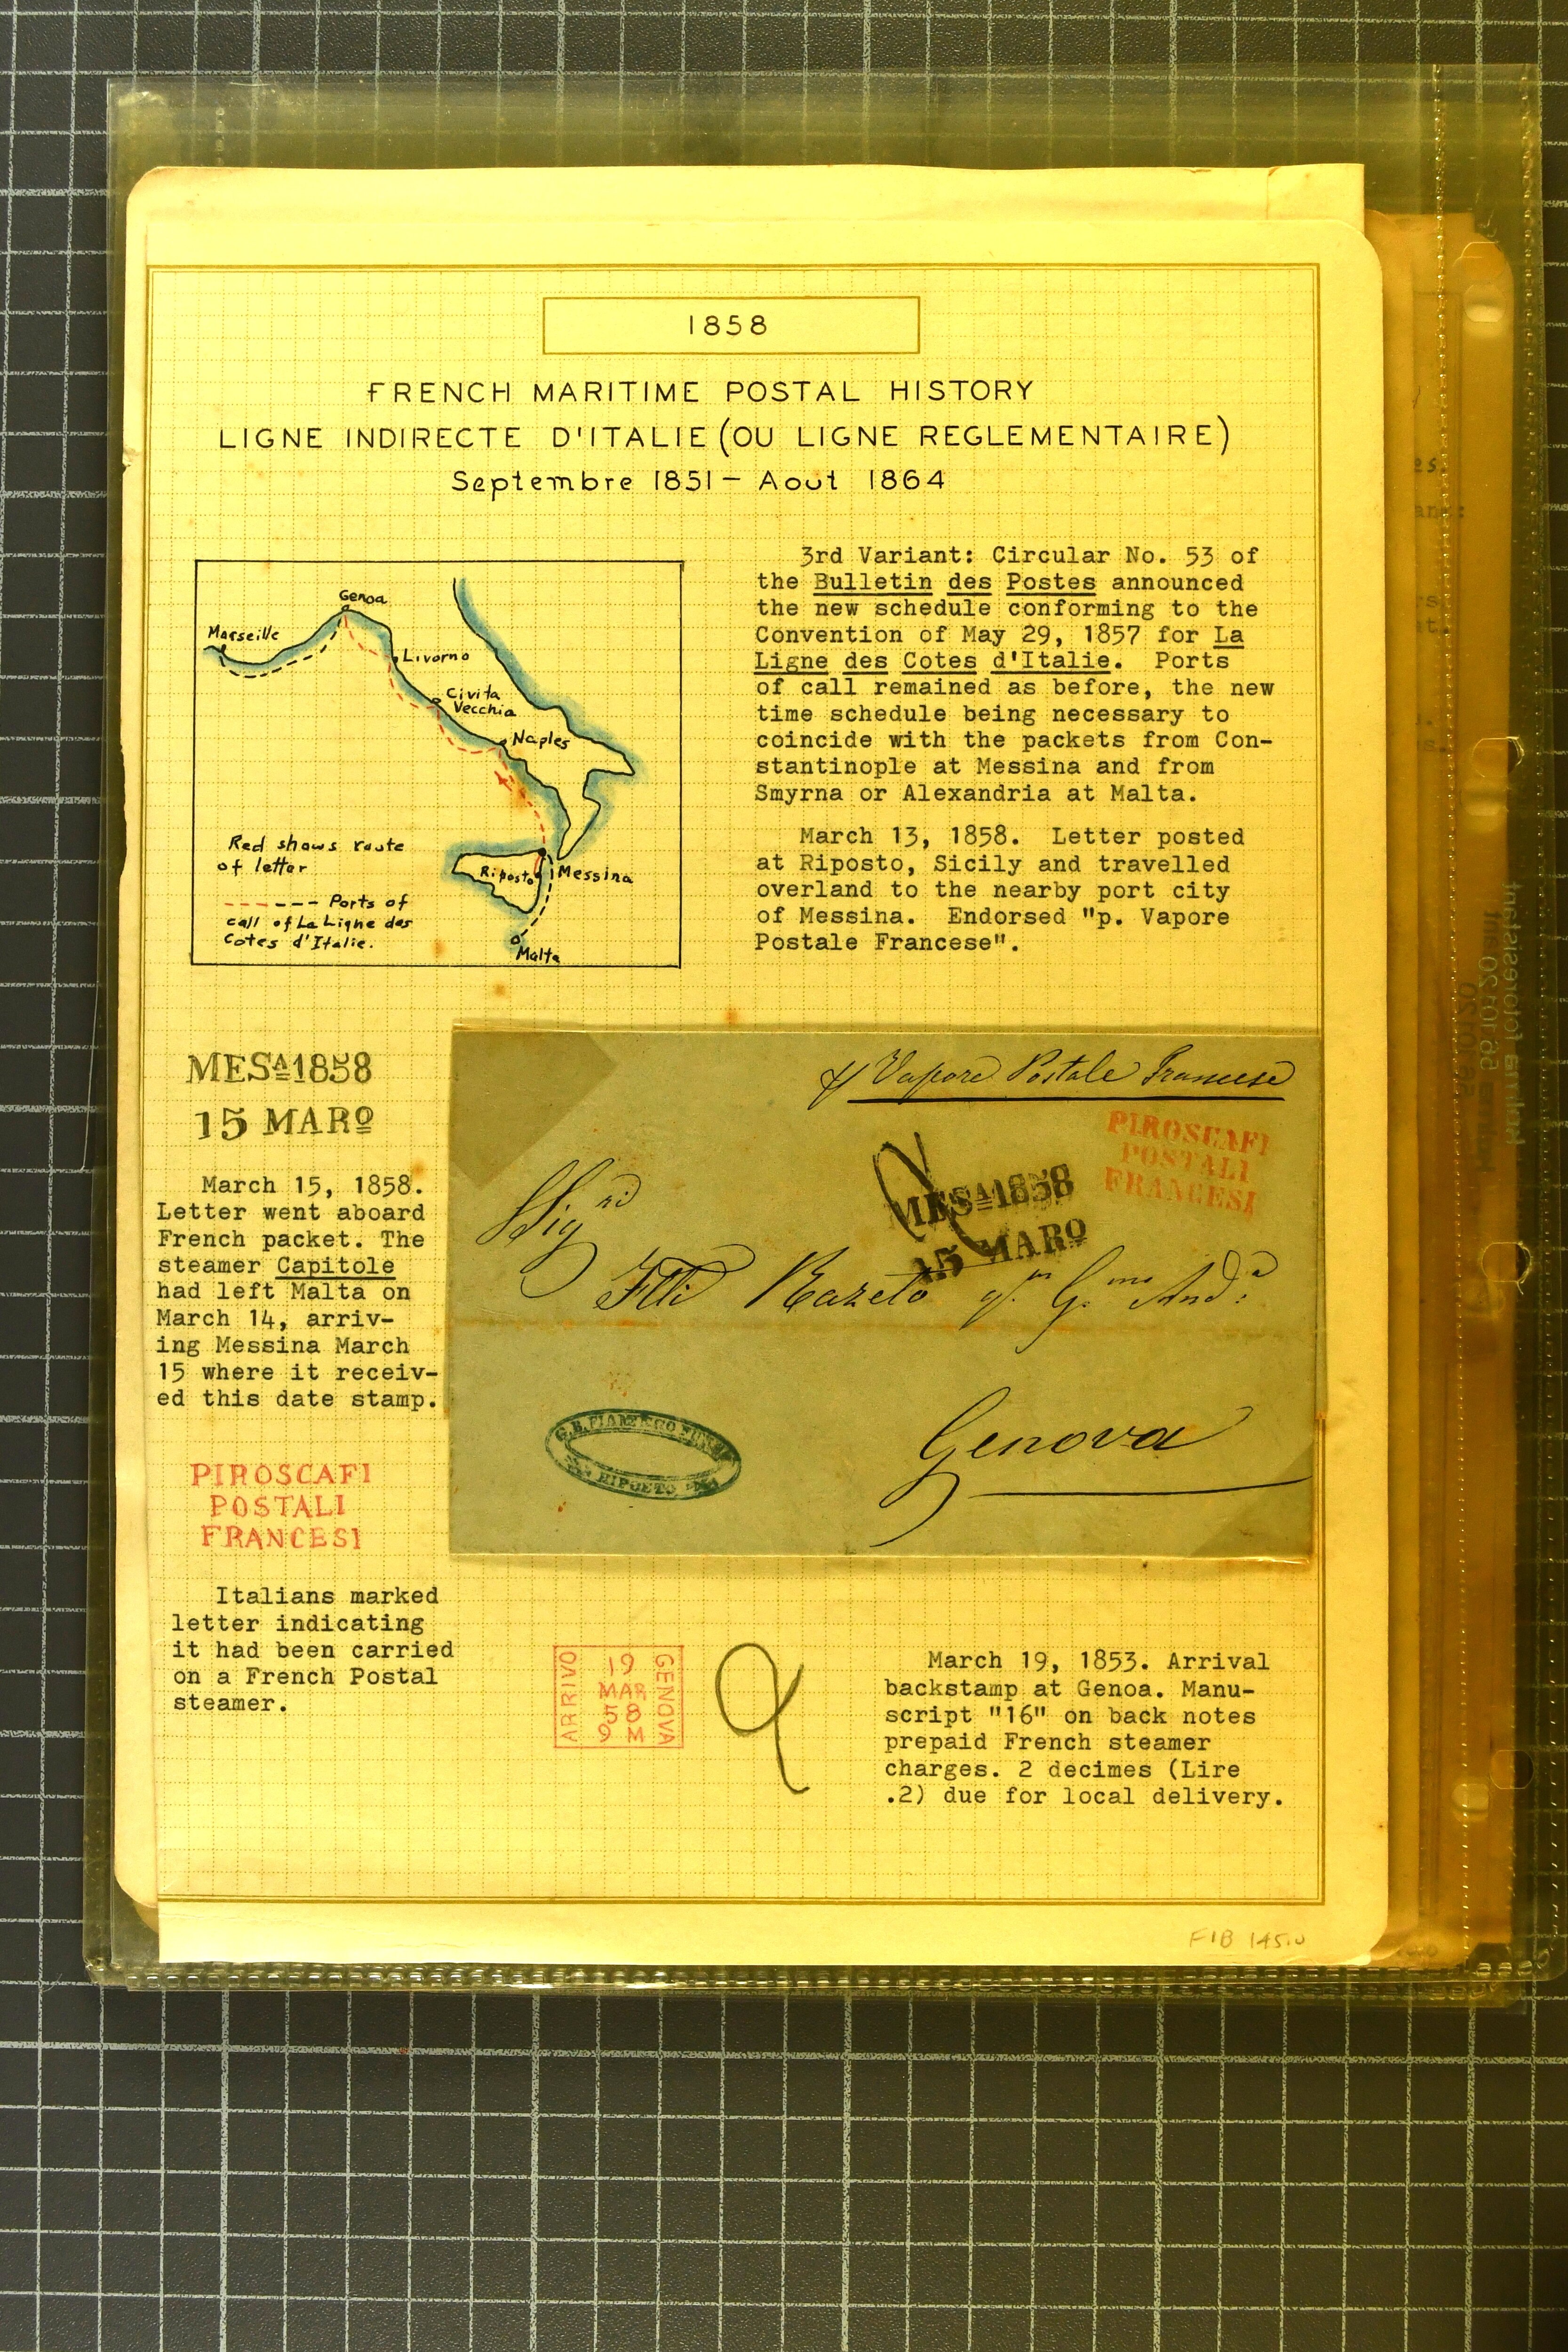 1858
FRENCH MARITIME POSTAL HISTORY
LIGNE INDIRECTE D'ITALIE (OU LIGNE REGLEMENTAIRE)
Septembre 1851 - Aout 1864
Genoa
Marseille
Livorno
Civita
Vecchia
Naples
Red shows route
of letter
Riposto
Messina
Ports of
call of La Ligne des
Cotes d'Italie.
Malta
3rd Variant: Circular No. 53 of
the Bulletin des Postes announced
the new schedule conforming to the
Convention of May 29, 1857 for La
Ligne des Cotes d'Italie. Ports
of call remained as before, the new
time schedule being necessary to
coincide with the packets from Con-
stantinople at Messina and from
Smyrna or Alexandria at Malta.
March 13, 1858. Letter posted
at Riposto, Sicily and travelled
overland to the nearby port city
of Messina. Endorsed "p. Vapore
Postale Francese".
MESA 1858
15 MARO
March 15, 1858.
Letter went aboard
French packet. The
steamer Capitole
had left Malta on
March 14, arriv-
ing Messina March
15 where it receiv-
ed this date stamp.
PIROSCAFI
POSTALI
FRANCESI
Italians marked
letter indicating
it had been carried
on a French Postal
steamer.
Vapore Postale Francese
PIROSCAFI
POSTALI
FRANCESI
MESA 1858
15 MARO
Sigri
Flli Razeto
Genova
ARRIVO
19
MAR
58
9 M
GENOVA
March 19, 1853. Arrival
backstamp at Genoa. Manu-
script "16" on back notes
prepaid French steamer
charges. 2 decimes (Lire
.2) due for local delivery.